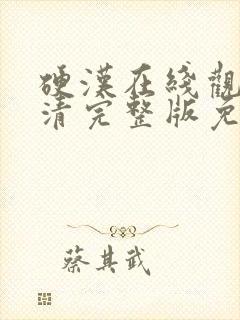 硬漢在綫觀
清完整版免
蔡其武